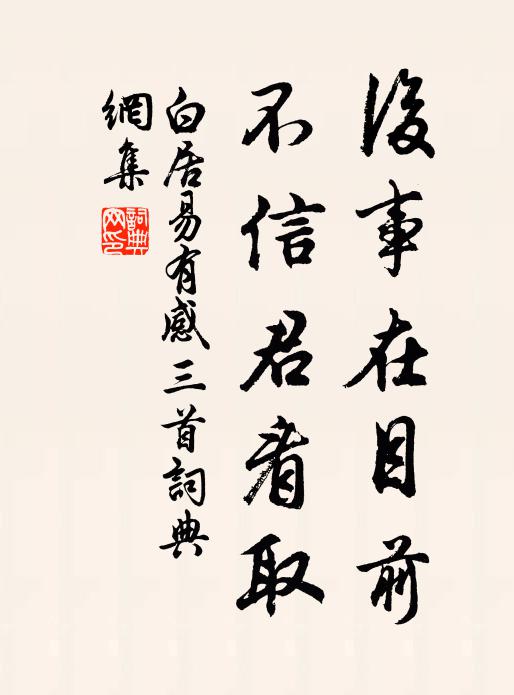 後事在目前
不信君看取
白居易有感三首詞典
網集
詞典網印